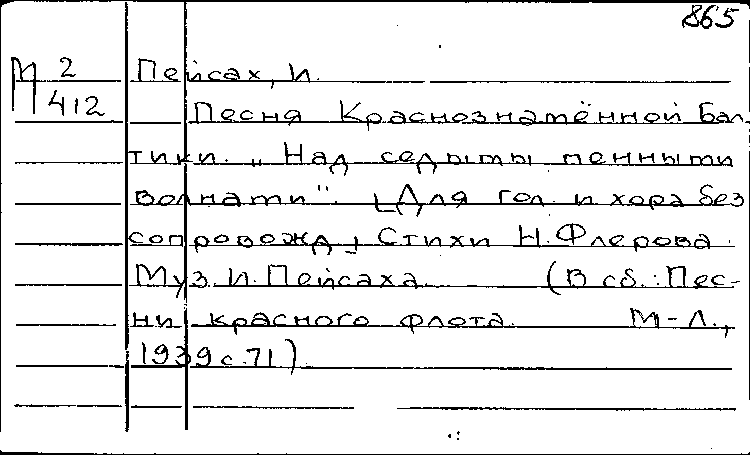 865
М 2 Пейсах, И.
412 Песня Краснознамённой Бал-
тики. „Над седыми пенными
волнами". [Для гол. и хора без
сопровожд.] Стихи Н. Флерова.
Муз. И. Пейсаха. (В сб.: Пес-
ни красного флота. М-Л.,
1939 с. 71)